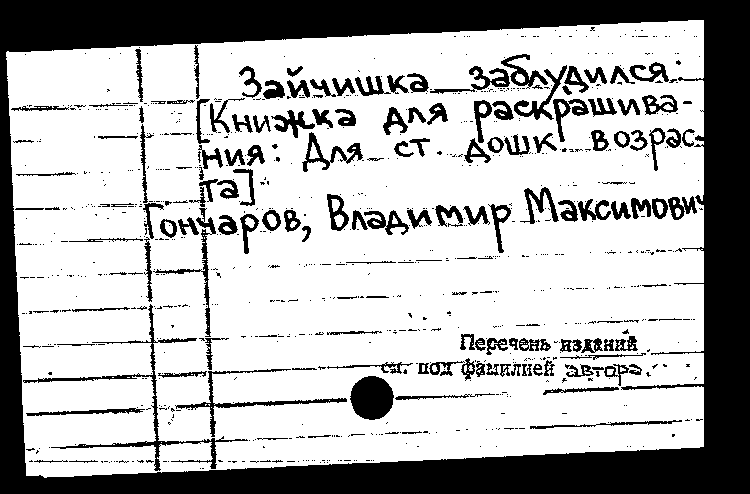 Зайчишка заблудился:
[Книжка для раскрашива-
ния: Для ст. дошк. возрас-
та]
Гончаров, Владимир Максимович
Перечень изданий
см. под фамилией автора.